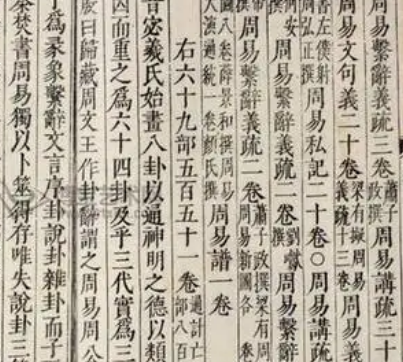 周易繫辭義疏三卷蕭子政撰周易講疏三十
周易文句義二十卷梁有擬周易義疏十三卷周易義
書左僕射周弘正撰周易私記二十卷○周易講疏
何安撰周易繫辭義疏二卷劉瓛撰周易繫辭
周易繫辭義疏二卷蕭子政撰梁有周易新圖各
國八卷薛景和撰周大演通統一卷顏氏撰周易譜一卷
右六十九部五百五十一卷通計亡部八百
昔宓羲氏始畫八卦以通神明之德以類
因而重之爲六十四卦及乎三代實爲三
殷曰歸藏周文王作卦辭謂之周易周公
子爲彖象繫辭文言序卦說卦雜卦而子
秦焚書周易獨以卜筮得存唯失說卦三